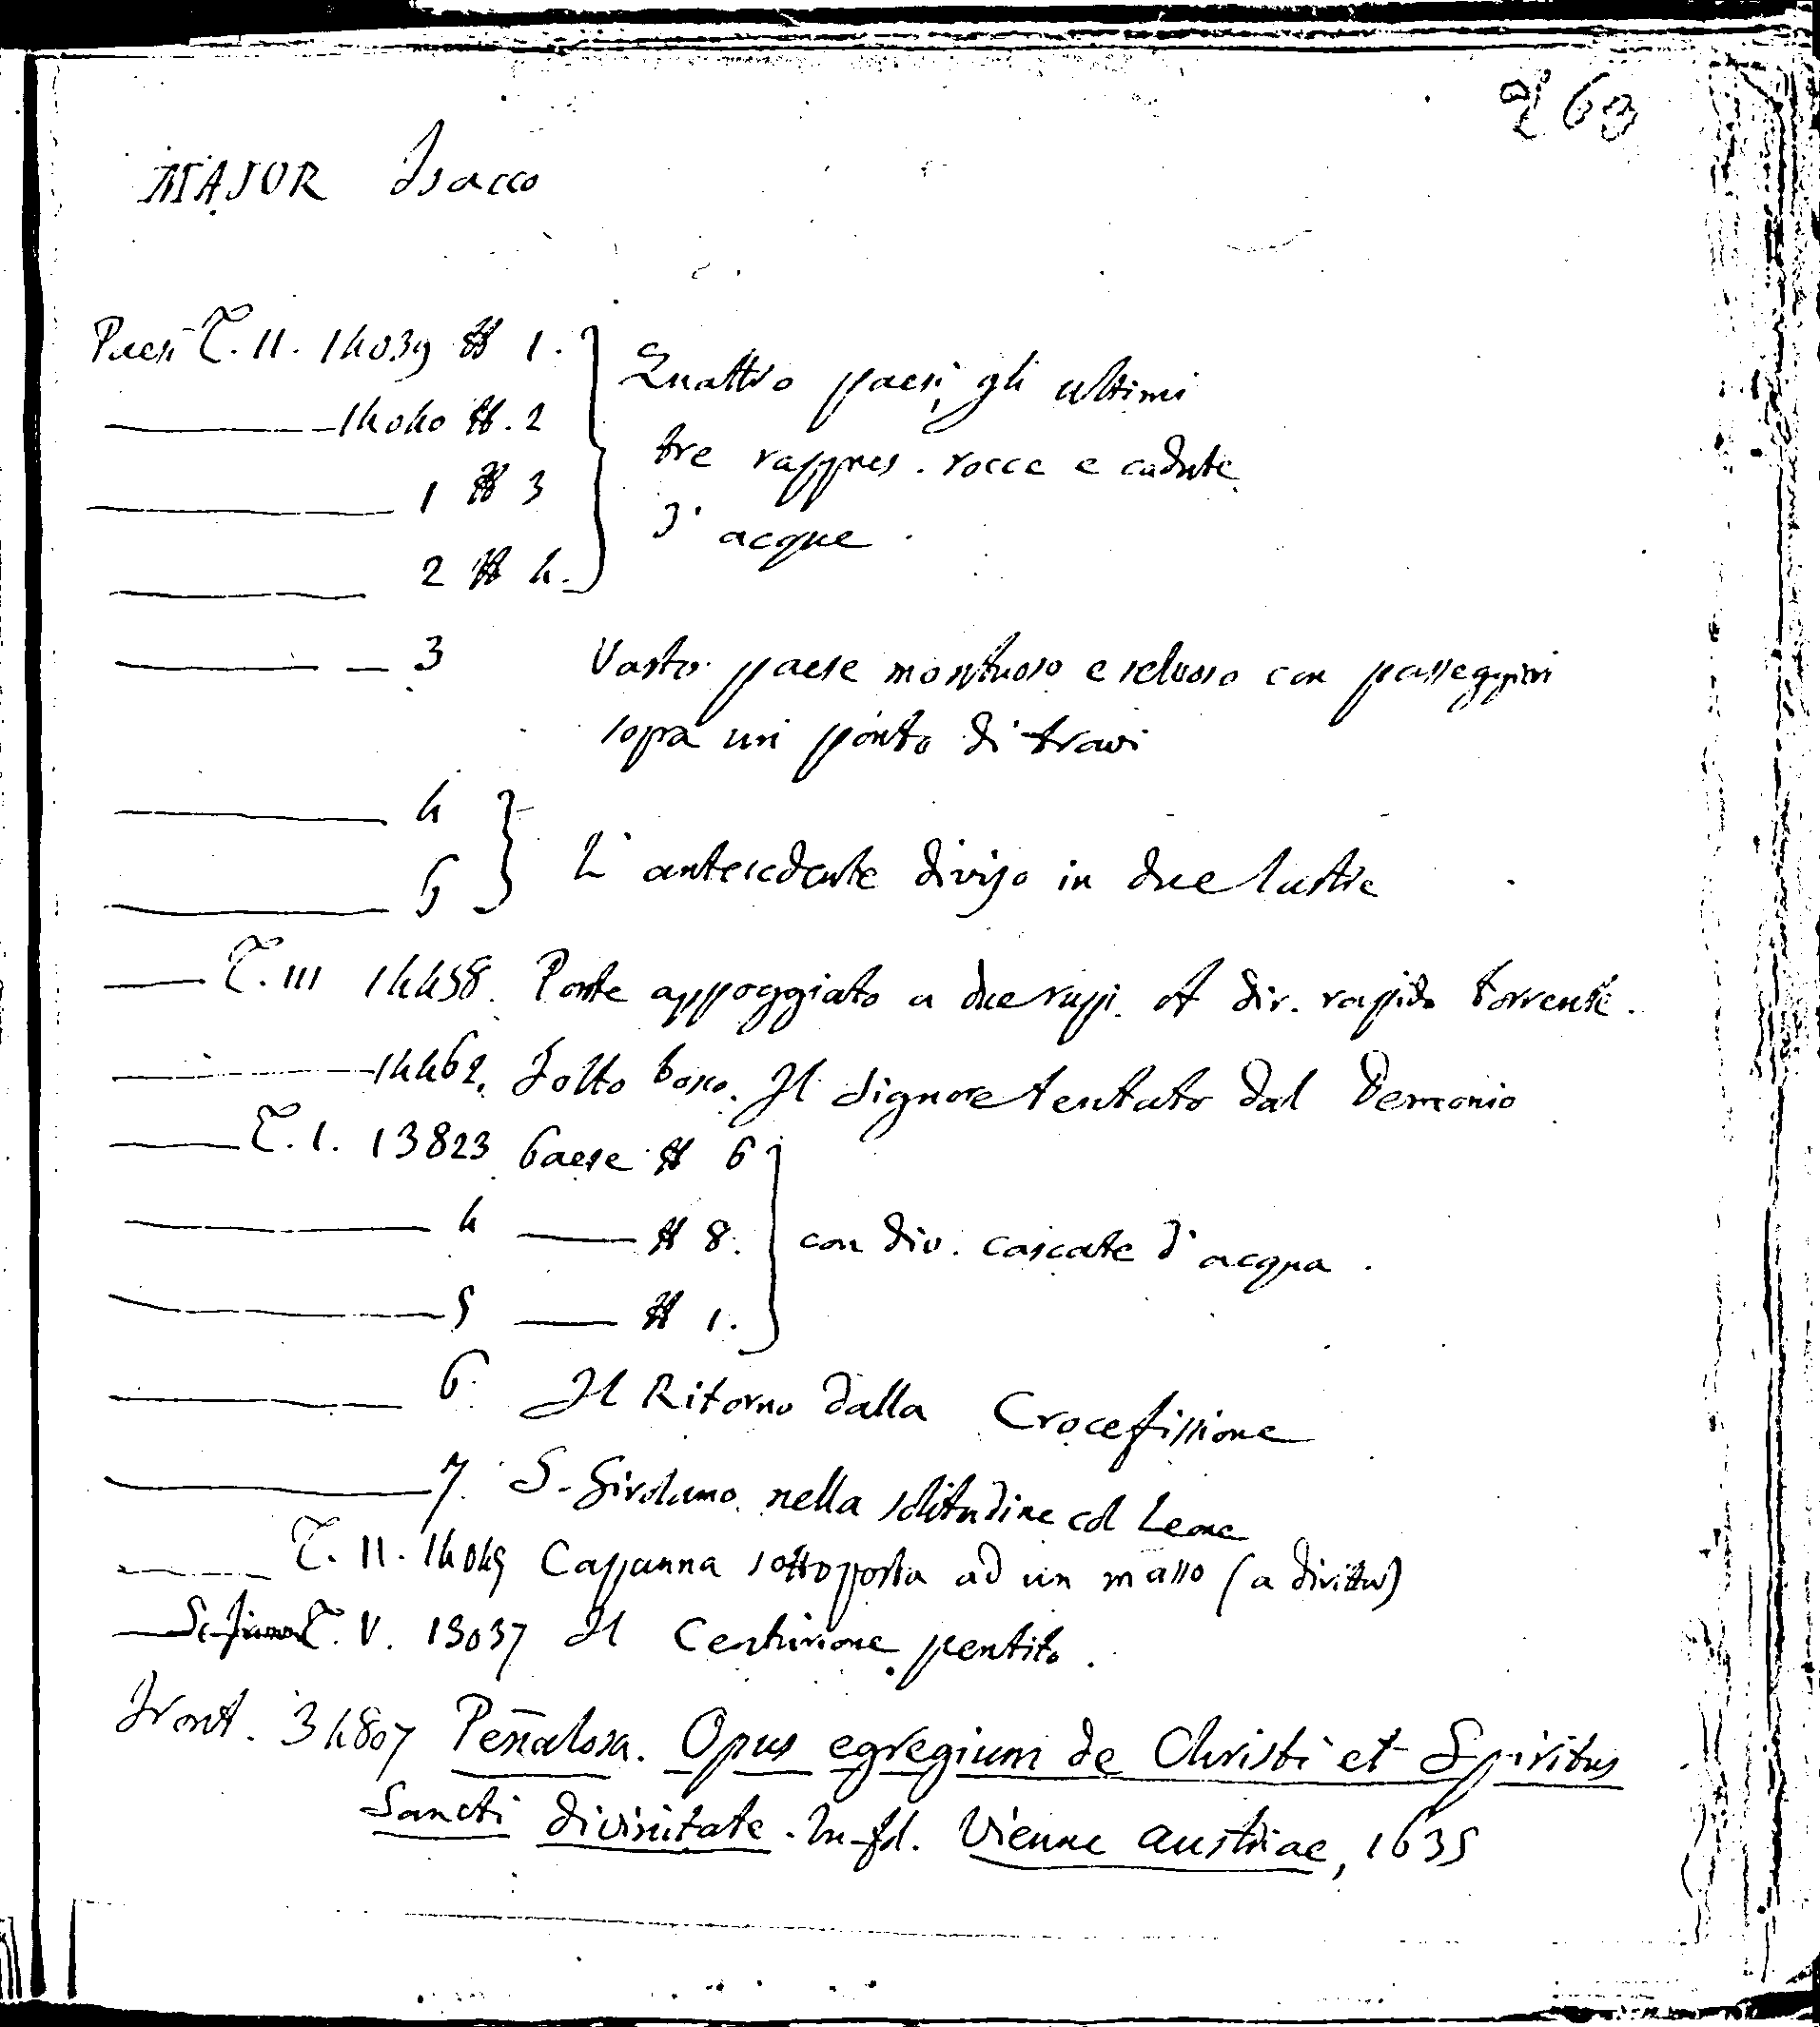 269
MAJOR Isacco
Paesi T. II. 14039 # 1.
Quattro paesi, gli ultimi
14040 #. 2
tre rappres. rocce e cadute
1 # 3
d' acque.
2 # 4.
3 Vasto paese montuoso e selvoso con passeggieri
sopra un ponto di travi
4
L' antecedente diviso in due lastre
5
T. III 14458. Ponte appoggiato a due rupi. A dir. rapido torrente.
14462. Folto bosco. Il Signore tentato dal Demonio
T. I. 13823 Paese # 6
4 # 8. con div. cascate d' acqua.
5 # 1.
6. Il Ritorno dalla Crocefissione
7. S. Girolamo nella solitudine col Leone
T. II. 14049 Capanna sottoposta ad un masso (a diritta)
T. V. 15037 Il Centurione pentito.
Front. 34807 Peñalosa. Opus egregium de Christi et Spiritus
Sancti divinitate. In-fol. Vienne Austriae, 1635